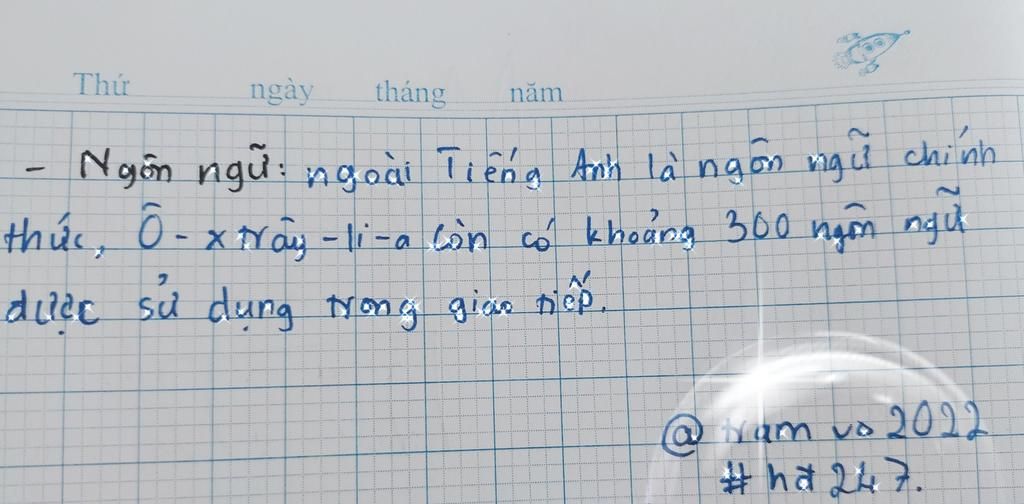 Thứ ngày tháng năm
- Ngôn ngữ: ngoài Tiếng Anh là ngôn ngữ chính
thức, Ô-xtrây-li-a còn có khoảng 300 ngôn ngữ
được sử dụng trong giao tiếp.
@ tram vo 2022
# hđ 247.